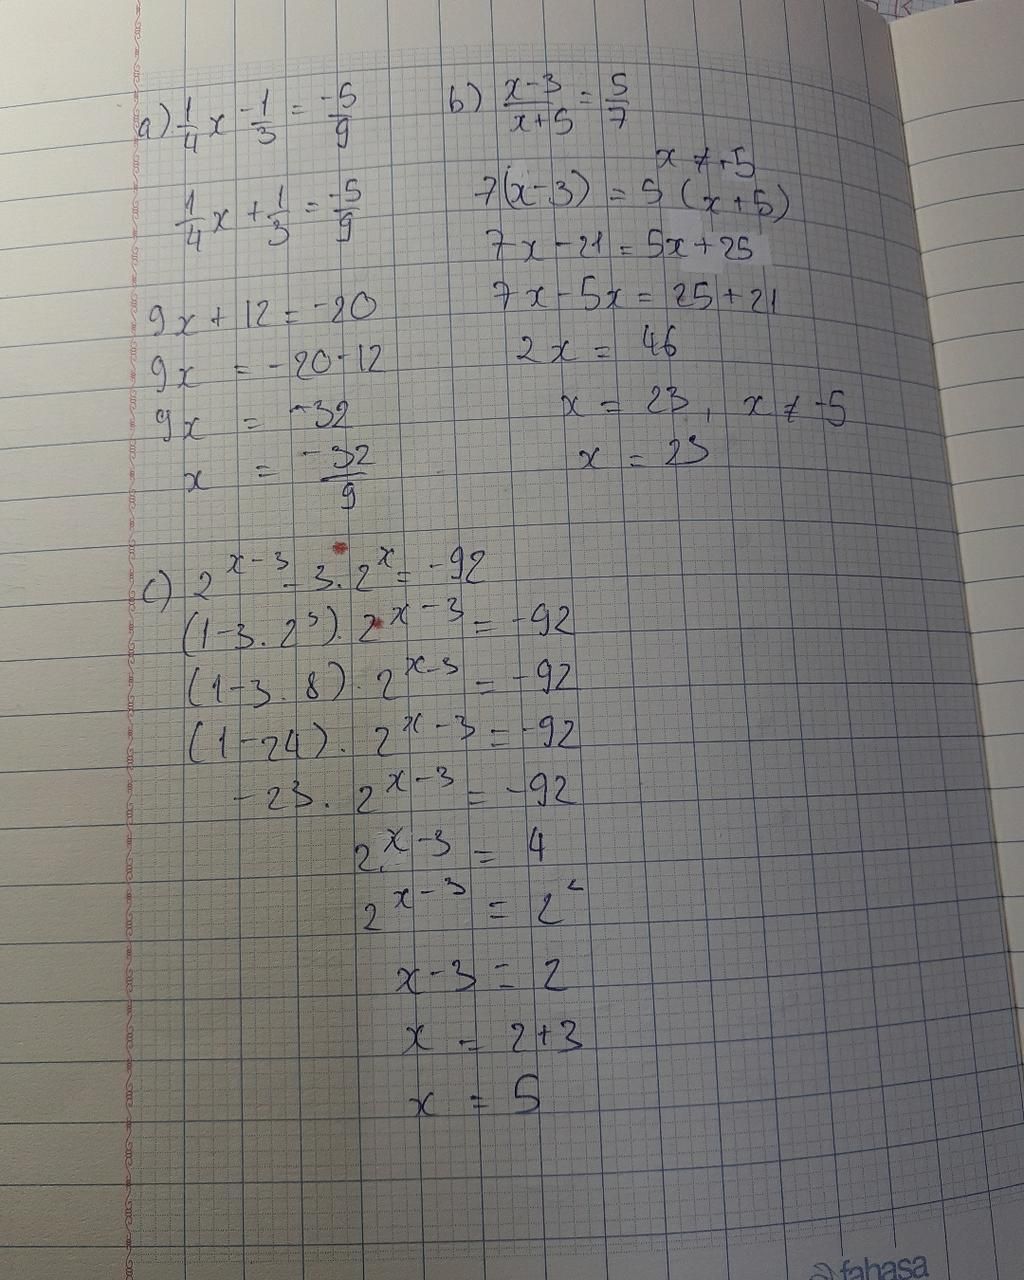 a) 1/4 x - -1/3 = -5/9
1/4 x + 1/3 = -5/9
9x + 12 = -20
9x = -20-12
9x = -32
x = -32/9
b) x-3/x+5 = 5/7
x ≠ -5
7(x-3) = 5 (x+5)
7x - 21 = 5x + 25
7x - 5x = 25 + 21
2x = 46
x = 23, x ≠ -5
x = 23
c) 2^(x-3) - 3.2^x = -92
(1-3.2^3). 2^(x-3) = -92
(1-3.8). 2^(x-3) = -92
(1-24). 2^(x-3) = -92
-23. 2^(x-3) = -92
2^(x-3) = 4
2^(x-3) = 2^2
x-3 = 2
x = 2+3
x = 5
fahasa